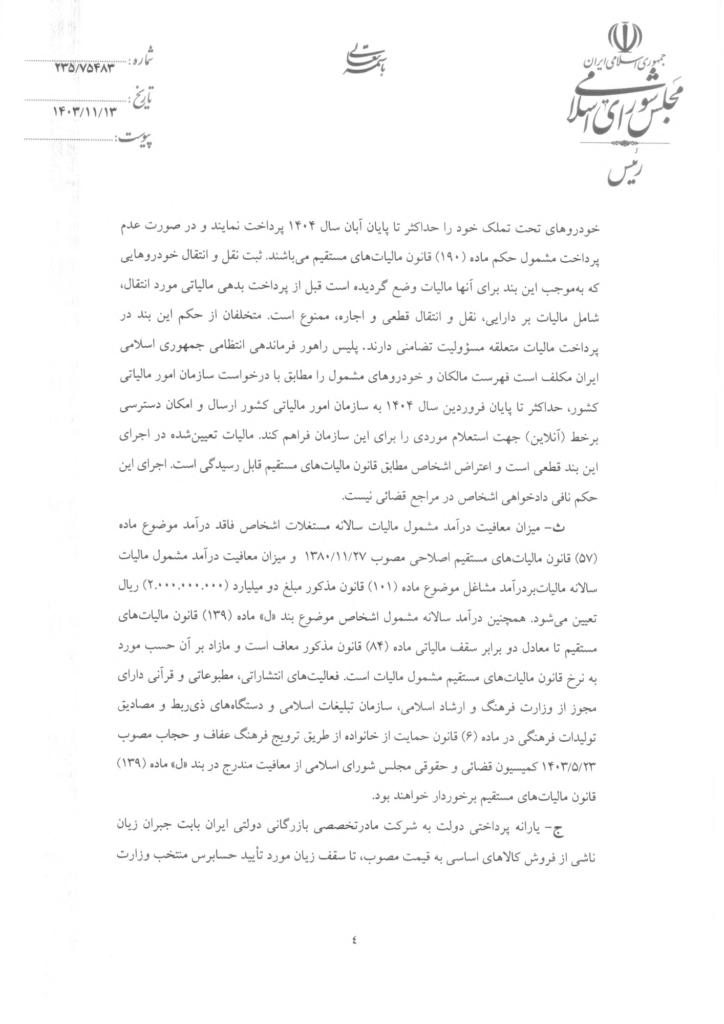 جمهوری اسلامی ایران
مجلس شورای اسلامی
رئیس
باسمه تعالی
شماره: ۲۳۵/۷۵۴۸۳
تاریخ: ۱۴۰۳/۱۱/۱۳
پیوست:
خودروهای تحت تملک خود را حداکثر تا پایان آبان سال ۱۴۰۴ پرداخت نمایند و در صورت عدم
پرداخت مشمول حکم ماده (۱۹۰) قانون مالیات‌های مستقیم می‌باشند. ثبت نقل و انتقال خودروهایی
که به‌موجب این بند برای آنها مالیات وضع گردیده است قبل از پرداخت بدهی مالیاتی مورد انتقال،
شامل مالیات بر دارایی، نقل و انتقال قطعی و اجاره، ممنوع است. متخلفان از حکم این بند در
پرداخت مالیات متعلقه مسؤولیت تضامنی دارند. پلیس راهور فرماندهی انتظامی جمهوری اسلامی
ایران مکلف است فهرست مالکان و خودروهای مشمول را مطابق با درخواست سازمان امور مالیاتی
کشور، حداکثر تا پایان فروردین سال ۱۴۰۴ به سازمان امور مالیاتی کشور ارسال و امکان دسترسی
برخط (آنلاین) جهت استعلام موردی را برای این سازمان فراهم کند. مالیات تعیین‌شده در اجرای
این بند قطعی است و اعتراض اشخاص مطابق قانون مالیات‌های مستقیم قابل رسیدگی است. اجرای این
حکم نافی دادخواهی اشخاص در مراجع قضائی نیست.
ث- میزان معافیت درآمد مشمول مالیات سالانه مستغلات اشخاص فاقد درآمد موضوع ماده
(۵۷) قانون مالیات‌های مستقیم اصلاحی مصوب ۱۳۸۰/۱۱/۲۷ و میزان معافیت درآمد مشمول مالیات
سالانه مالیات‌بردرآمد مشاغل موضوع ماده (۱۰۱) قانون مذکور مبلغ دو میلیارد (۲.۰۰۰.۰۰۰.۰۰۰) ریال
تعیین می‌شود. همچنین درآمد سالانه مشمول اشخاص موضوع بند «ل» ماده (۱۳۹) قانون مالیات‌های
مستقیم تا معادل دو برابر سقف مالیاتی ماده (۸۴) قانون مذکور معاف است و مازاد بر آن حسب مورد
به نرخ قانون مالیات‌های مستقیم مشمول مالیات است. فعالیت‌های انتشاراتی، مطبوعاتی و قرآنی دارای
مجوز از وزارت فرهنگ و ارشاد اسلامی، سازمان تبلیغات اسلامی و دستگاه‌های ذی‌ربط و مصادیق
تولیدات فرهنگی در ماده (۶) قانون حمایت از خانواده از طریق ترویج فرهنگ عفاف و حجاب مصوب
۱۴۰۳/۵/۲۳ کمیسیون قضائی و حقوقی مجلس شورای اسلامی از معافیت مندرج در بند «ل» ماده (۱۳۹)
قانون مالیات‌های مستقیم برخوردار خواهند بود.
ج- یارانه پرداختی دولت به شرکت مادرتخصصی بازرگانی دولتی ایران بابت جبران زیان
ناشی از فروش کالاهای اساسی به قیمت مصوب، تا سقف زیان مورد تأیید حسابرس منتخب وزارت
٤